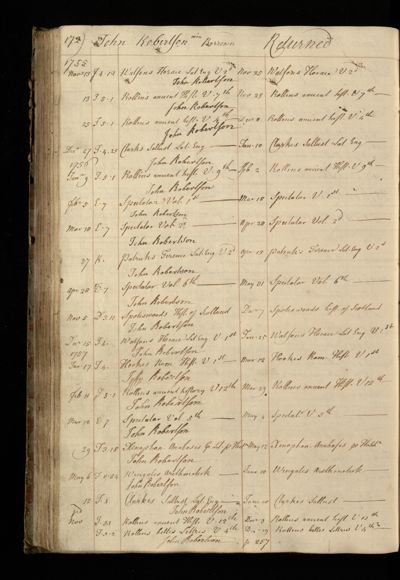 172) John Robertson in Borrowen Returned
1755
Nov 13 F.4.19 Watsons Horace Lat Eng V 2d Nov 25 Watsons Horace V 2d
John Robertson
13 F.5.1 Rollins ancient Hist: V. 7th Nov 25 Rollins ancient hist. V 7th
John Robertson
25 F.5.1 Rollins ancient hist: V
Rollins ancient hist V
John Robertson
Dec 27 F.4.25 Clarks Sallust Lat Eng Jan 10 Clarks Sallust Lat Eng
1756 John Robertson
Jan 9 F.5.1 Rollins ancient hist: V. 9th Feb 2 Rollins ancient Hist: V 9th
John Robertson
Feb 5 E.7 Spectator Vol. 1st Mar 10 Spectator V. 1st
John Robertson
Mar 10 E.7 Spectator Vol. 2d Apr 20 Spectator Vol. 2d
John Robertson
27 K. Patricks Terence Lat Eng V 2d Apr 17 Patricks Terence Lat Eng V 2d
John Robertson
Apr 20 E.7 Spectator Vol. 6th May 21 Spectator Vol 6th
John Robertson
Nov 5 D.5.11 Spotswoods Hist of Scotland Dec 7 Spotswoods hist. of Scotland
John Robertson
Dec 15 F.4. Watsons Horace Lat Eng V 1st Jan 25 Watsons Horace Lat Eng V 1st
1757 John Robertson
Jan 27 F.4. Hookes Rom. Hist. V 1st Mar 12 Hookes Rom: Hist V 1st
John Robertson
Feb 11 F.5.1 Rollins ancient history V 12th Mar 29 Rollins ancient Hist. V 12th
John Robertson
Mar 12 E.7 Spectator Vol 5th May 2 Spectat. V 5th
John Robertson
29 F.3.15 Xenophon Anabasis G Lat May 12 Xenophon Anabasis
John Robertson
May 6 Wingates Arithmetick June 10 Wingates Arithmetick
John Robertson
12 F.8 Clarkes Sallust Lat Eng June 10 Clarkes Sallust
John Robertson
Nov Rollins ancient Hist. V 13th Dec 9 Rollins ancient hist V 13th
F.5.2 Rollins belles Lettres V 4th Dec 19 Rollins belles Lettres V 4th
John Robertson p 257